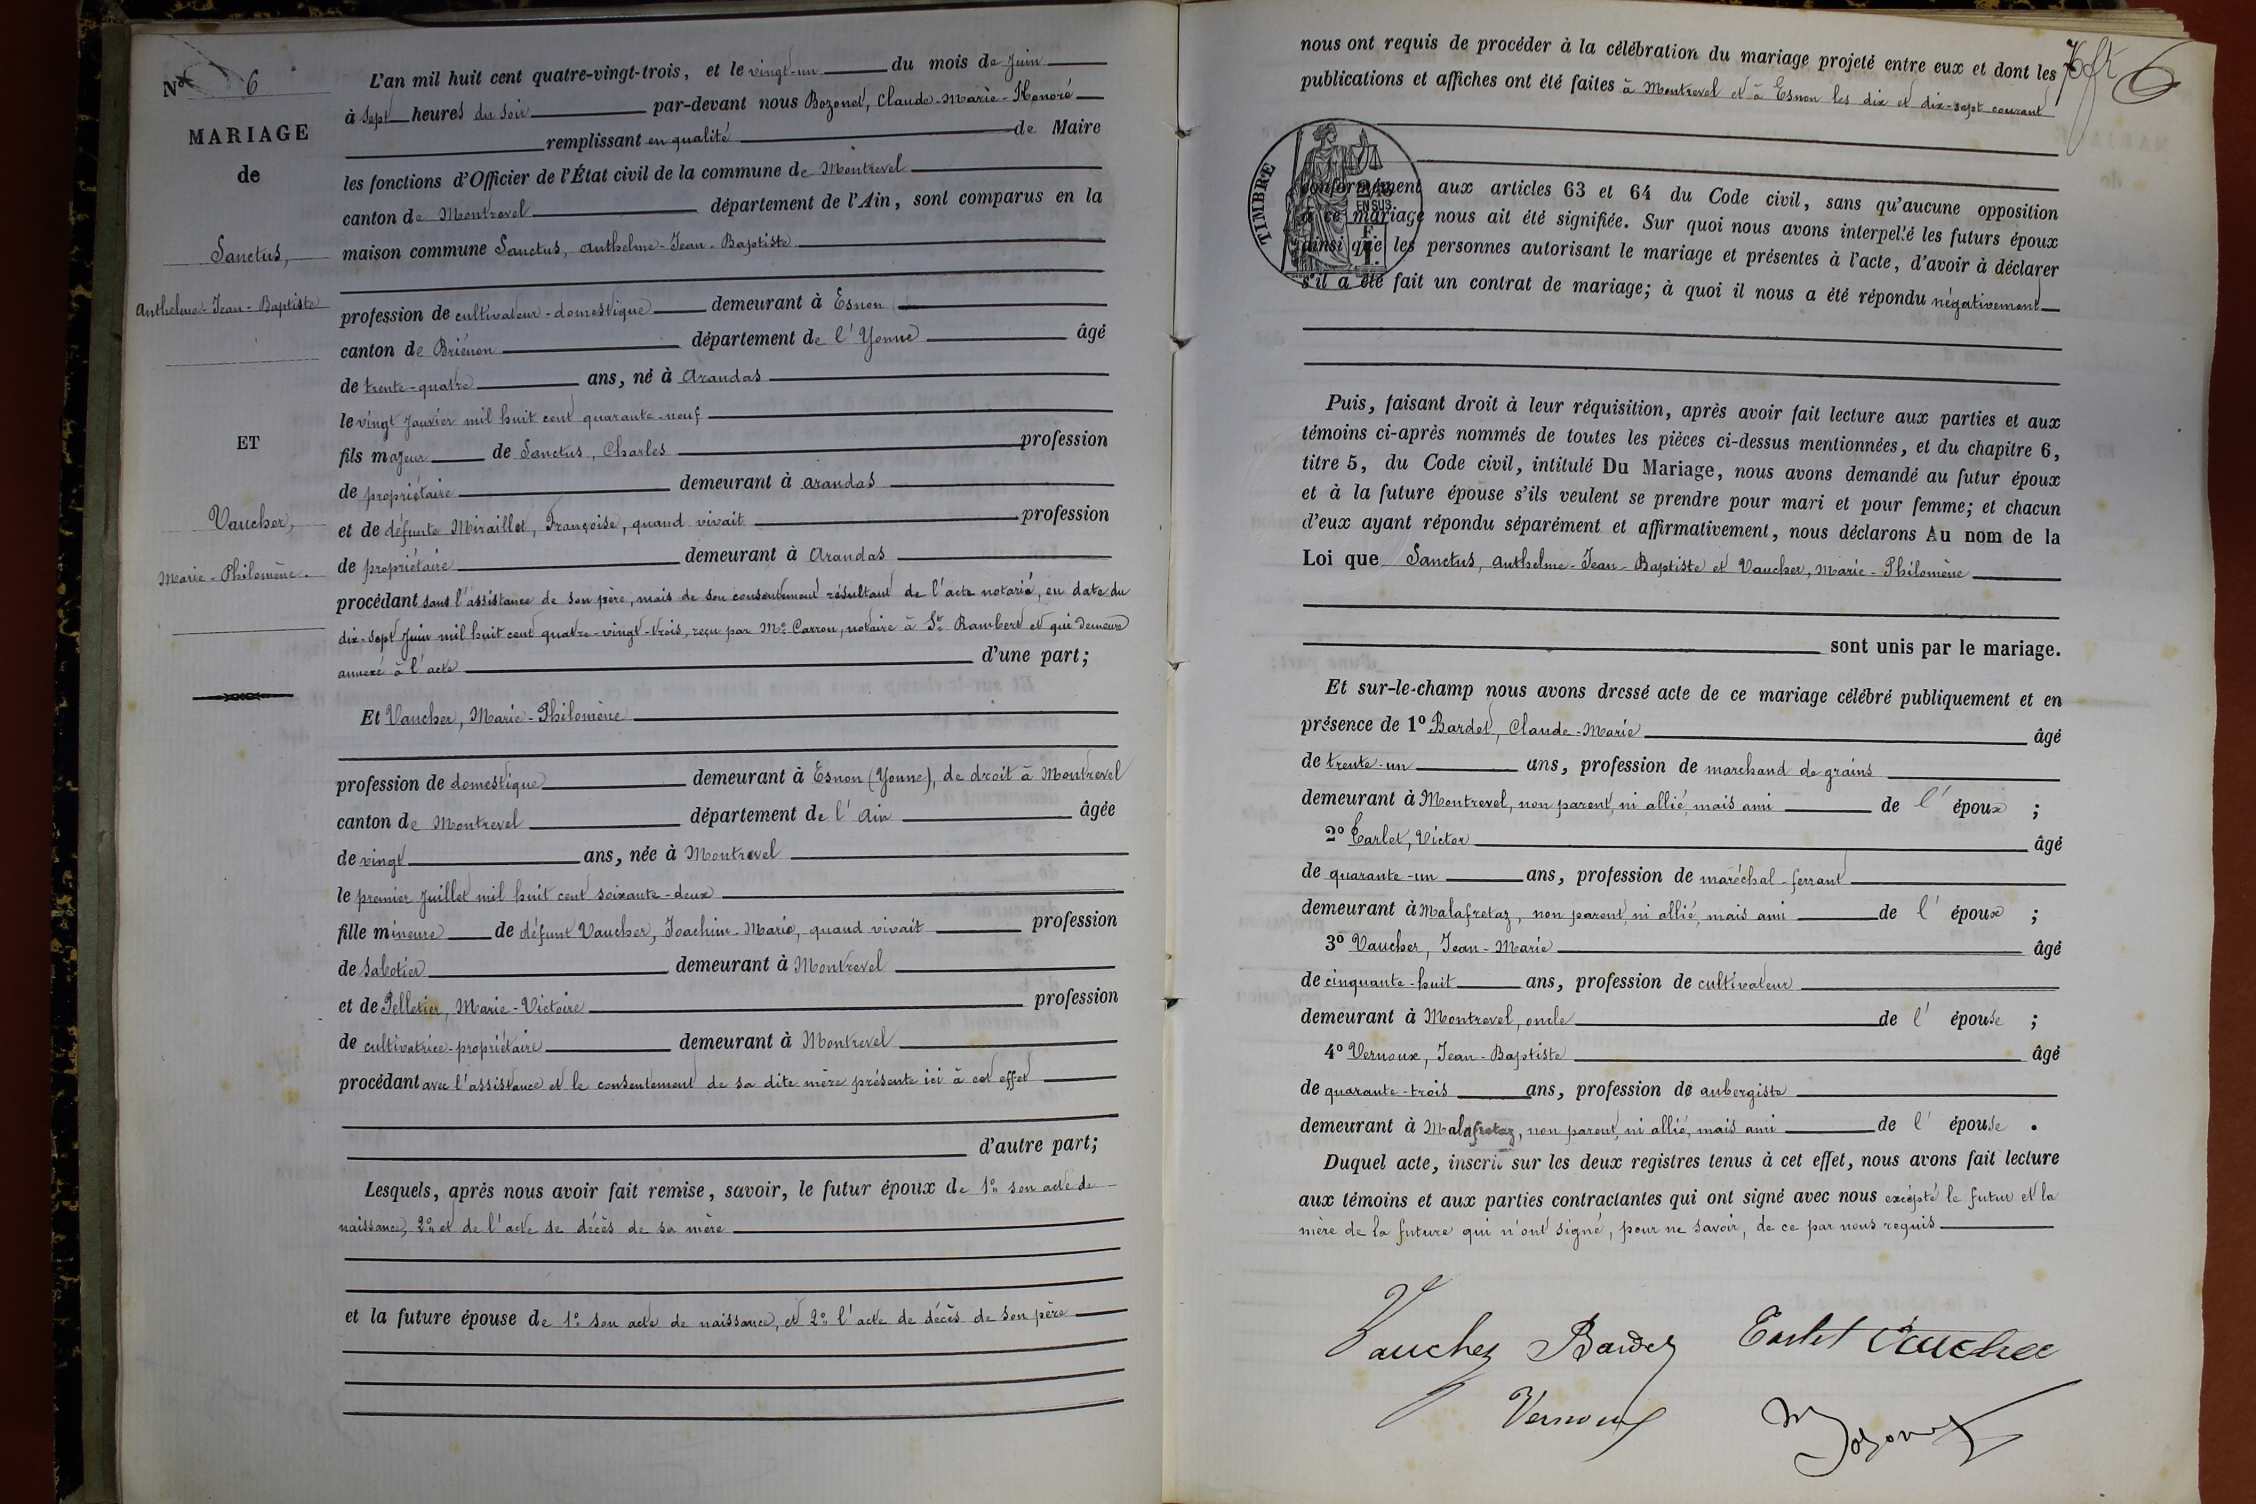 No 6
MARIAGE
de
Sanctus,
Anthelme-Jean-Baptiste
ET
Vaucher,
Marie-Philomène.
L'an mil huit cent quatre-vingt-trois, et le vingt-un du mois de Juin
à sept heures du soir par-devant nous Bozonet, Claude-Marie-Honoré
remplissant en qualité de Maire
les fonctions d'Officier de l'État civil de la commune de Montrevel
canton de Montrevel département de l'Ain, sont comparus en la
maison commune Sanctus, Anthelme-Jean-Baptiste
profession de cultivateur-domestique demeurant à Esnon
canton de Briénon département de l'Yonne âgé
de trente-quatre ans, né à Arandas
le vingt Janvier mil huit cent quarante-neuf
fils majeur de Sanctus, Charles profession
de propriétaire demeurant à Arandas
et de défunte Miraillet, Françoise, quand vivait profession
de propriétaire demeurant à Arandas
procédant sans l'assistance de son père, mais de son consentement résultant de l'acte notarié, en date du
dix-sept Juin mil huit cent quatre-vingt-trois, reçu par Me Carron, notaire à St Rambert et qui demeure
annexé à l'acte d'une part;
Et Vaucher, Marie-Philomène
profession de domestique demeurant à Esnon (Yonne), de droit à Montrevel
canton de Montrevel département de l'Ain âgée
de vingt ans, née à Montrevel
le premier Juillet mil huit cent soixante-deux
fille mineure de défunt Vaucher, Joachim-Marie, quand vivait profession
de sabotier demeurant à Montrevel
et de Pelletier, Marie-Victoire profession
de cultivatrice-propriétaire demeurant à Montrevel
procédant avec l'assistance et le consentement de sa dite mère présente ici à cet effet
d'autre part;
Lesquels, après nous avoir fait remise, savoir, le futur époux de 1o son acte de
naissance, 2o et de l'acte de décès de sa mère
et la future épouse de 1o son acte de naissance, et 2o l'acte de décès de son père
nous ont requis de procéder à la célébration du mariage projeté entre eux et dont les
publications et affiches ont été faites à Montrevel et à Esnon les dix et dix-sept courant
6
TIMBRE
2/10
EN SUS
conformément aux articles 63 et 64 du Code civil, sans qu'aucune opposition
à ce mariage nous ait été signifiée. Sur quoi nous avons interpellé les futurs époux
ainsi que les personnes autorisant le mariage et présentes à l'acte, d'avoir à déclarer
s'il a été fait un contrat de mariage; à quoi il nous a été répondu négativement
Puis, faisant droit à leur réquisition, après avoir fait lecture aux parties et aux
témoins ci-après nommés de toutes les pièces ci-dessus mentionnées, et du chapitre 6,
titre 5, du Code civil, intitulé Du Mariage, nous avons demandé au futur époux
et à la future épouse s'ils veulent se prendre pour mari et pour femme; et chacun
d'eux ayant répondu séparément et affirmativement, nous déclarons Au nom de la
Loi que Sanctus, Anthelme-Jean-Baptiste et Vaucher, Marie-Philomène
sont unis par le mariage.
Et sur-le-champ nous avons dressé acte de ce mariage célébré publiquement et en
présence de 1o Bardet, Claude-Marie âgé
de trente-un ans, profession de marchand de grains
demeurant à Montrevel, non parent, ni allié, mais ami de l'époux ;
2o Carlet, Victor âgé
de quarante-un ans, profession de maréchal-ferrant
demeurant à Malafretaz, non parent, ni allié, mais ami de l'époux ;
3o Vaucher, Jean-Marie âgé
de cinquante-huit ans, profession de cultivateur
demeurant à Montrevel, oncle de l'épouse ;
4o Vernoux, Jean-Baptiste âgé
de quarante-trois ans, profession de aubergiste
demeurant à Malafretaz, non parent, ni allié, mais ami de l'épouse .
Duquel acte, inscrit sur les deux registres tenus à cet effet, nous avons fait lecture
aux témoins et aux parties contractantes qui ont signé avec nous excepté le futur et la
mère de la future qui n'ont signé, pour ne savoir, de ce par nous requis
Vaucher Bardet Carlet Vaucher
Vernoux Bozonet